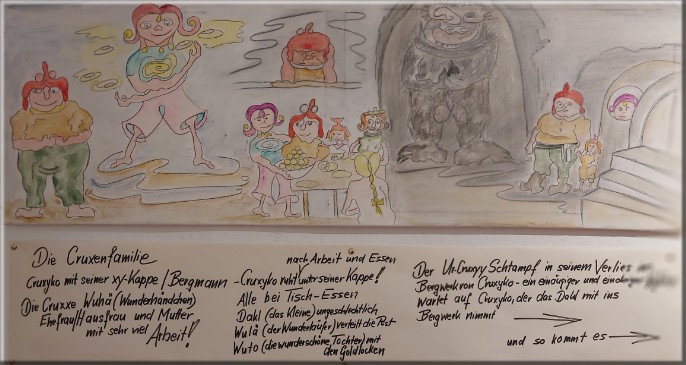 Die Cruxenfamilie
Cruxyko mit seiner xy-Kappe / Bergmann
Die Cruxxe Wuhä (Wunderhändchen)
Ehefrau/Hausfrau und Mutter
mit sehr viel Arbeit!
nach Arbeit und Essen
- Cruxyko ruht unter seiner Kappe!
Alle bei Tisch - Essen
Dakl (das Kleine) ungeschlechtlich
Wulä (der Wunderläufer) verteilt die Post
Wuto (die wunderschöne Tochter) mit
den Goldlocken
Der Ur-Cruxyy Schtampf in seinem Verlies
Bergwerk von Cruxyko - ein einäugiger und
wartet auf Cruxyko, der das Dakl mit ins
Bergwerk nimmt
und so kommt es